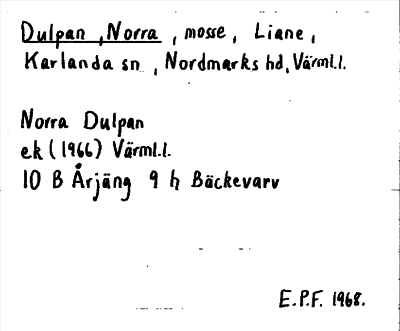 Dulpan, Norra, mosse, Liane,
Karlanda sn, Nordmarks hd, Värml.l.
Norra Dulpan
ek (1966) Värml.l.
10 B Årjäng 9 h Bäckevarv
E.P.F. 1968.